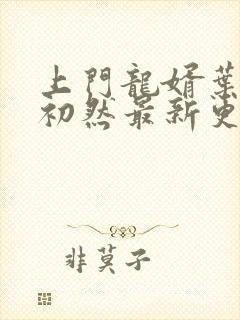 上門龍婿葉
初然最新更
非莫子